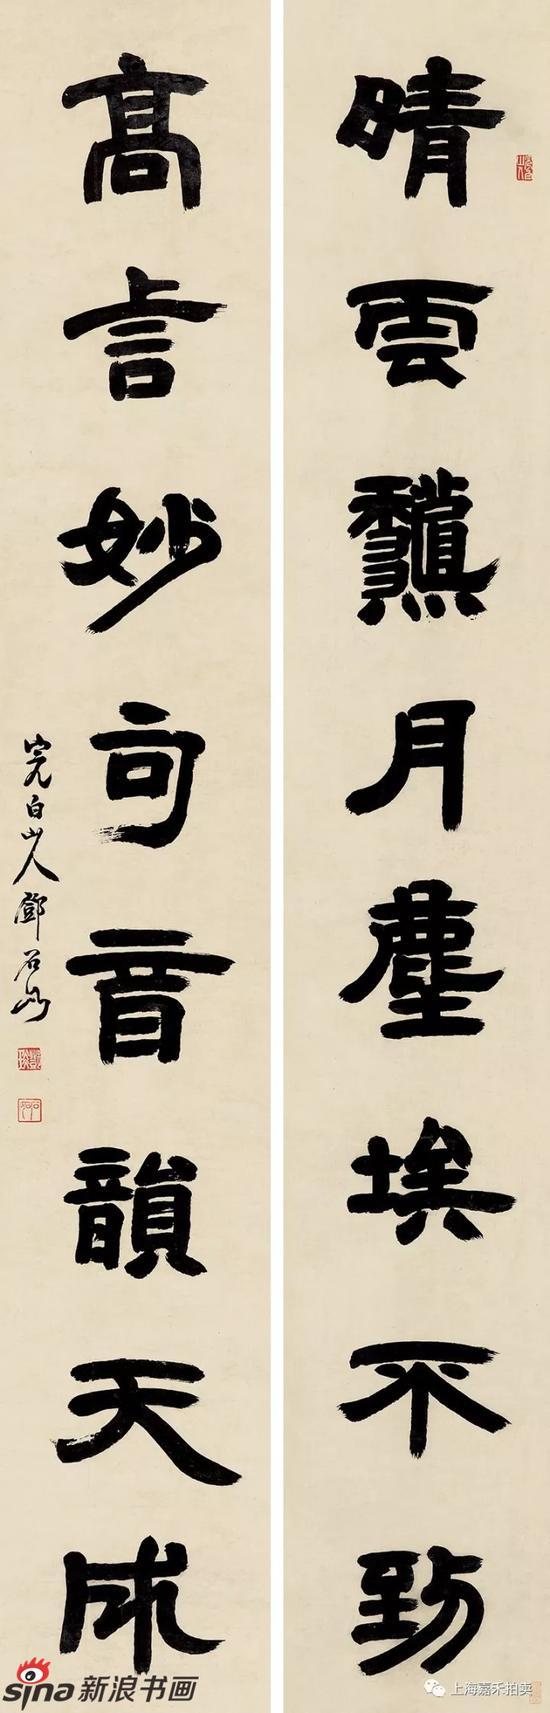 晴雲龝月塵埃不到
高言妙句音韻天成
完白山人鄧石如
sina新浪书画
上海嘉禾拍卖